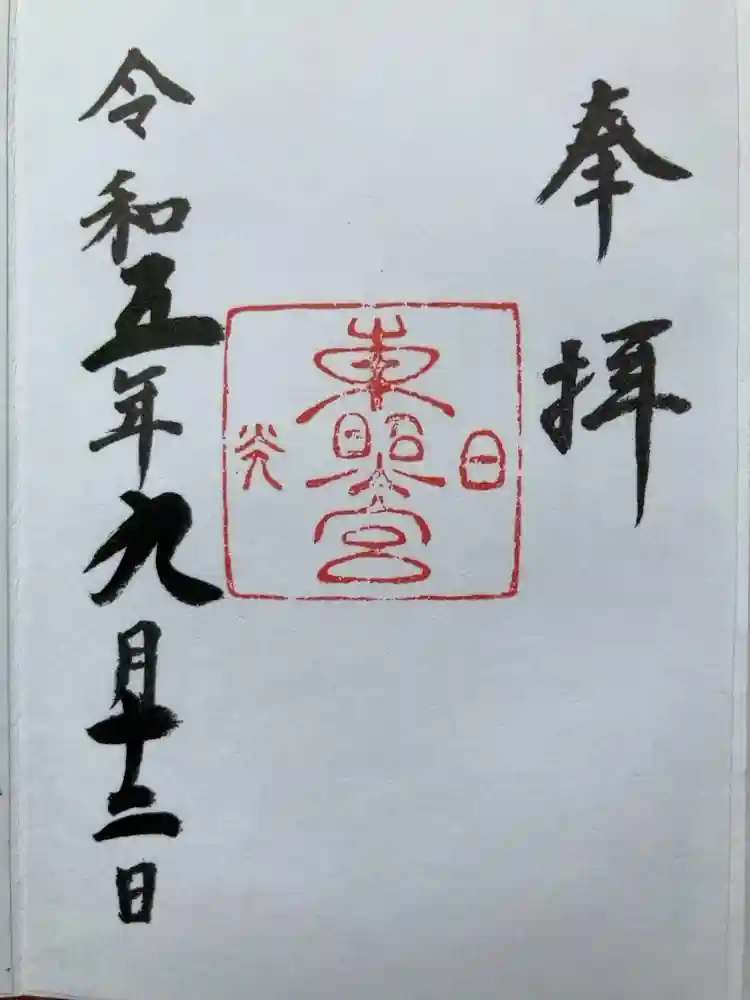 奉拝
日光
東照宮
令和五年九月十二日